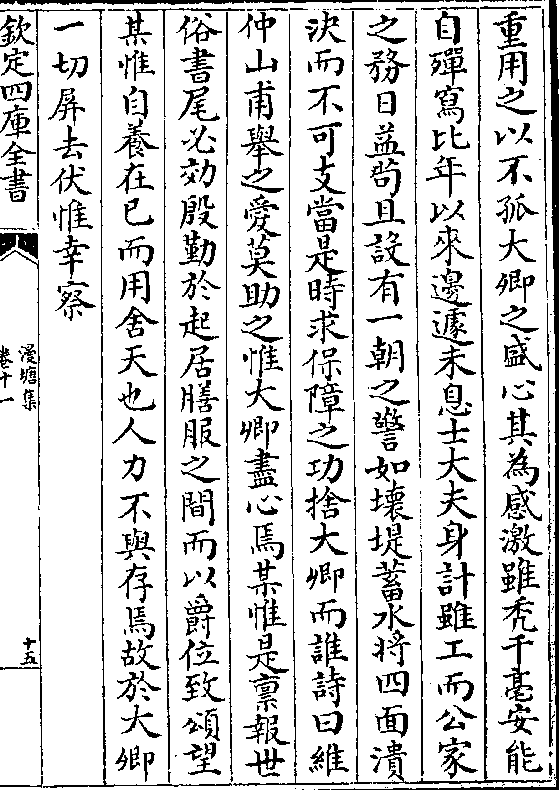 重用之以不孤大卿之盛心其為感激雖禿千毫安能
自殫寫比年以來邊遽未息士大夫身計雖工而公家
之務日益茍且設有一朝之警如壊堤蓄水将四面潰
決而不可支當是時求保障之功捨大卿而誰詩曰維
仲山甫舉之愛莫助之惟大卿盡心焉某惟是禀報世
俗書尾必効殷勤於起居膳服之間而以爵位致頌望
某惟自養在已而用舍天也人力不與存焉故於大卿
一切屏去伏惟幸察
欽定四庫全書
漫塘集
卷十一
十五